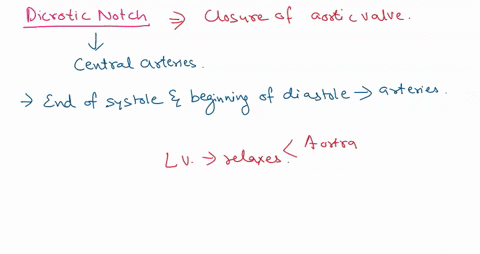 Dicrotic Notch ⇒ Closure of aortic valve.
↓
Central arteries.
→ End of systole & beginning of diastole → arteries.
L V. → relaxes. < Aortra